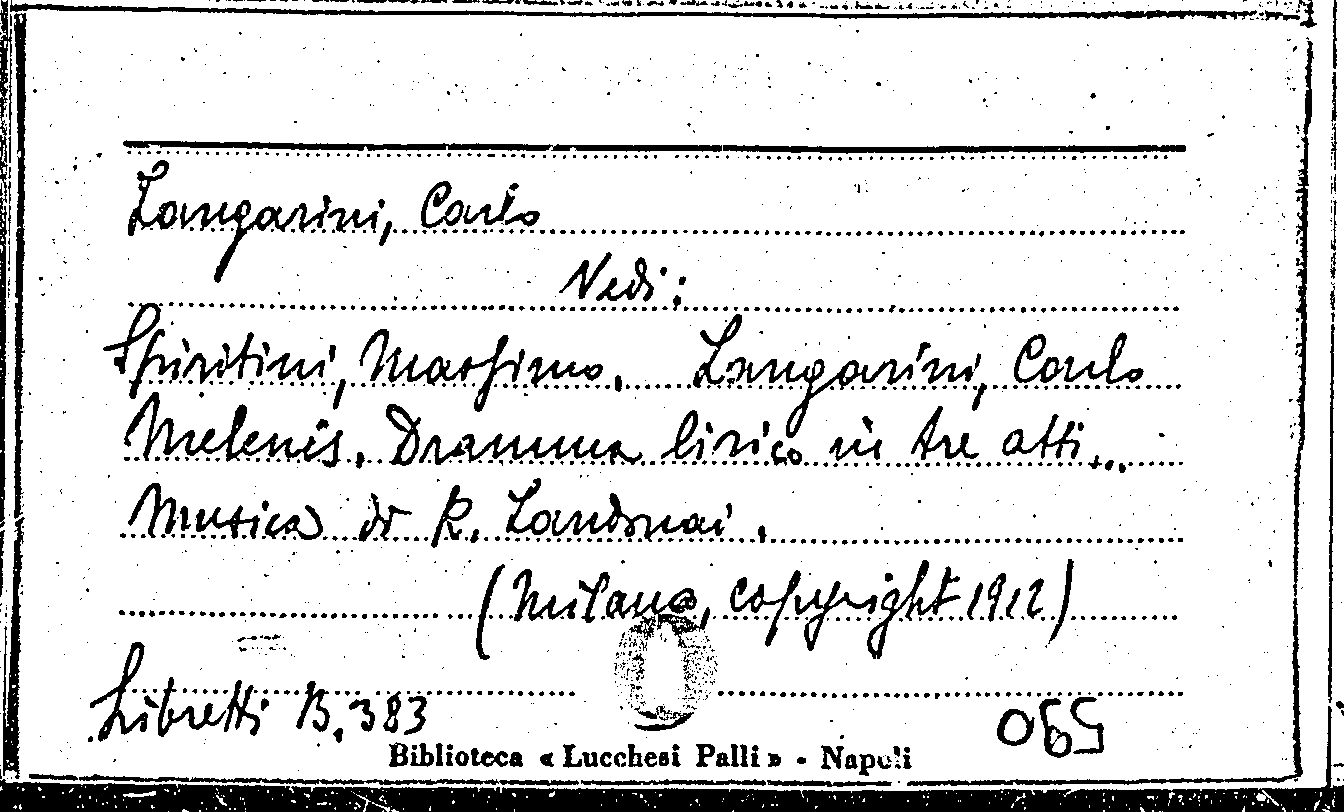 Zangarini, Carlo
Vedi:
Spiritini, Massimo. Zangarini, Carlo
Melenis. Dramma lirico in tre atti...
Musica di R. Zandonai.
(Milano, copyright 1912)
Libretti B.383
590
Biblioteca « Lucchesi Palli » - Napoli